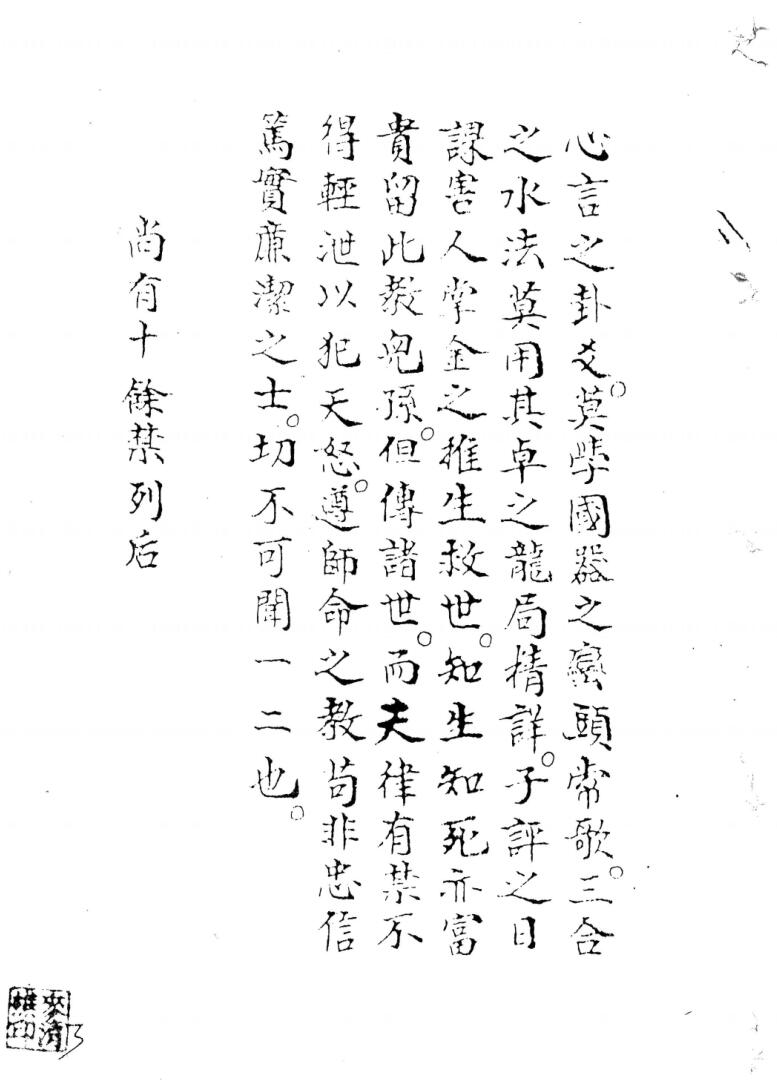 心言之卦爻。莫學國器之巒頭常歌。三合
之水法莫用其卓之龍局精詳。子評之日
課害人掌金之推生救世。知生知死亦富
貴留此教兒孫。但傳諸世。而夫律有禁不
得輕泄以犯天怒。遵師命之教苟非忠信
篤實廉潔之士。切不可聞一二也。
尚有十餘禁列后